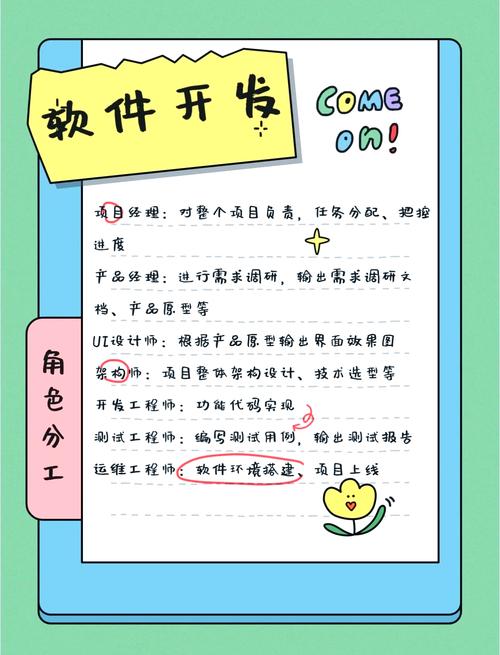 软件开发
COME
ON!
项目经理：对整个项目负责，任务分配、把控
进度
产品经理：进行需求调研，输出需求调研文
档、产品原型等
UI设计师：根据产品原型输出界面效果图
架构师：项目整体架构设计、技术选型等
开发工程师：功能代码实现
测试工程师：编写测试用例，输出测试报告
运维工程师：软件环境搭建、项目上线
角色分工